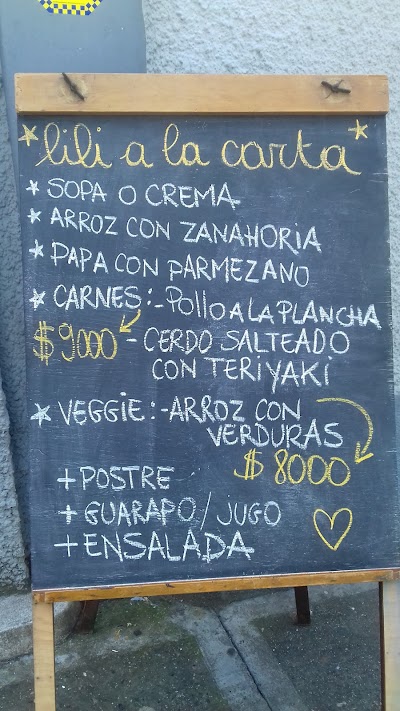 lili a la carta
* SOPA O CREMA
* ARROZ CON ZANAHORIA
* PAPA CON PARMEZANO
* CARNES: - POLLO A LA PLANCHA
$9000 - CERDO SALTEADO
CON TERIYAKI
* VEGGIE: - ARROZ CON
VERDURAS
$8000
+ POSTRE
+ GUARAPO / JUGO
+ ENSALADA